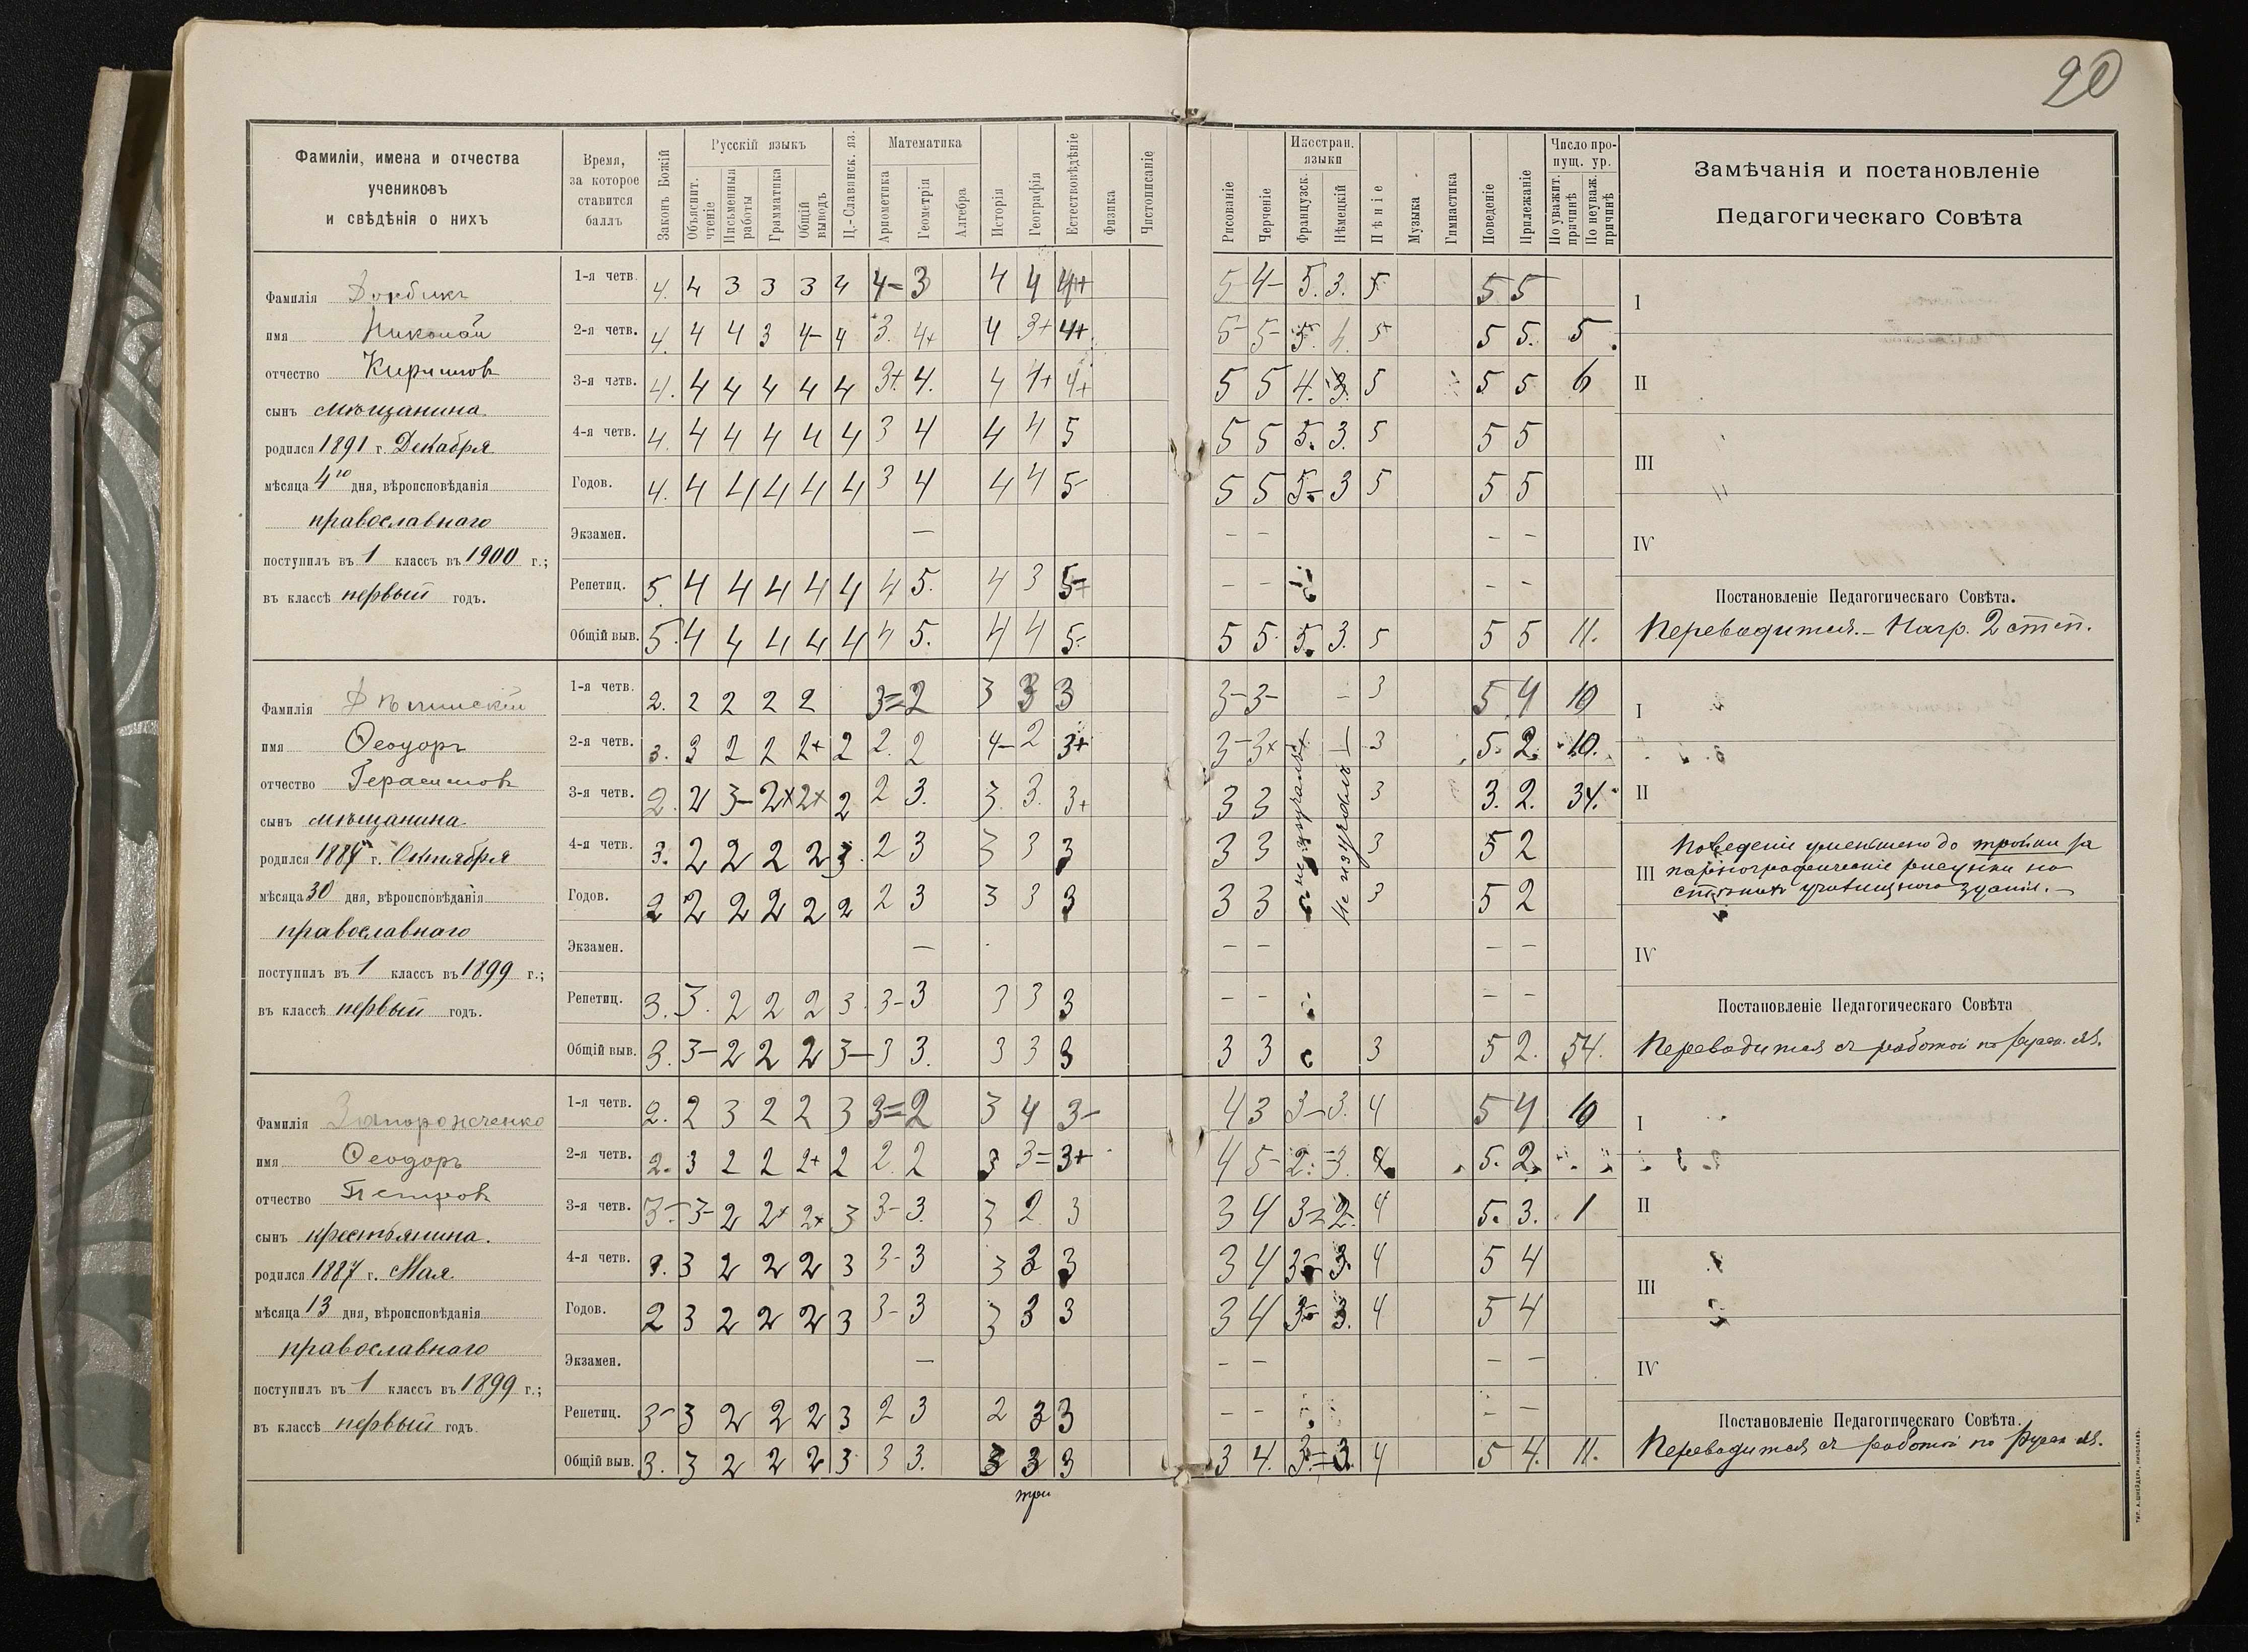 20
Фамиліи, имена и отчества
учениковъ
и свѣдѣнія о нихъ
Время,
за которое
ставится
баллъ
Законъ Божій
Русскій языкъ
Объяснит. чтеніе
Письменныя работы
Грамматика
Общій выводъ
Ц.-Славянск. яз.
Математика
Ариѳметика
Геометрія
Алгебра
Исторія
Географія
Естествовѣдѣніе
Физика
Чистописаніе
Рисованіе
Черченіе
Иностран. языки
Французск.
Нѣмецкій
Пѣніе
Музыка
Гимнастика
Поведеніе
Прилежаніе
Число пропущ. ур.
По уважит. причинѣ
По неуваж. причинѣ
Замѣчанія и постановленіе
Педагогическаго Совѣта
Фамилія
имя Николай
отчество Кирилловъ
сынъ мѣщанина
родился 1891 г. Декабря
мѣсяца 4го дня, вѣроисповѣданія
православнаго
поступилъ въ 1 классъ въ 1900 г.;
въ классѣ первый годъ.
1-я четв. 4. 4 3 3 3 4 4- 3 4 4 4+ 5 4- 5. 3. 5 5 5
2-я четв. 4. 4 4 3 4- 4 3. 4+ 4 3+ 4+ 5- 5- 5. 4. 5+ 5 5. 5
3-я четв. 4. 4 4 4 4 4 3+ 4. 4 4+ 4+ 5 5 4. 3. 5 5 5 6
4-я четв. 4. 4 4 4 4 4 3 4 4 4 5 5 5 5. 3. 5 5 5
Годов. 4. 4 4 4 4 4 3 4 4 4 5- 5 5 5- 3 5 5 5
Экзамен. — — — — —
Репетиц. 5. 4 4 4 4 4 4 5. 4 3 5- — — — —
Общій выв. 5. 4 4 4 4 4 4 5. 4 4 5- 5 5 5. 3. 5 5 5 11.
I
II
III
IV
Постановленіе Педагогическаго Совѣта.
Переводится. — Нагр. 2 степ.
Фамилія
имя Ѳеодоръ
отчество Герасимовъ
сынъ мѣщанина
родился 1887 г. Октября
мѣсяца 30 дня, вѣроисповѣданія
православнаго
поступилъ въ 1 классъ въ 1899 г.;
въ классѣ первый годъ.
1-я четв. 2. 2 2 2 2 3= 2 3 3 3 3- 3- — 3 5 4 10
2-я четв. 3. 3 2 2 2+ 2 2. 2 4- 2 3+ 3- 3+ 3 5. 2. 10.
3-я четв. 2. 2 3- 2+ 2+ 2 2 3. 3. 3. 3+ 3 3 3 3. 2. 34.
4-я четв. 3. 2 2 2 2 3. 2 3 3 3 3 3 3 3 5 2
Годов. 2 2 2 2 2 2 2 3 3 3 3 3 3 3 5 2
не изучалъ
Не изучалъ
Экзамен. — — — — —
Репетиц. 3. 3. 2 2 2 3. 3- 3 3 3 3 — — — —
Общій выв. 3. 3- 2 2 2 3- 3 3. 3 3 3 3 3 3 5 2. 54.
I
II
III Поведеніе уменьшено до тройки за
порнографическіе рисунки на
стѣнахъ училищнаго зданія. —
IV
Постановленіе Педагогическаго Совѣта
Переводится съ работой по русск. яз.
Фамилія Запорожченко
имя Ѳеодоръ
отчество Петровъ
сынъ крестьянина.
родился 1887 г. Мая
мѣсяца 13 дня, вѣроисповѣданія
православнаго
поступилъ въ 1 классъ въ 1899 г.;
въ классѣ первый годъ.
1-я четв. 2. 2 3 2 2 3 3= 2 3 4 3- 4 3 3- 3. 4 5 4 10
2-я четв. 2. 3 2 2 2+ 2 2. 2 3 3= 3+ 4 5- 2. 3. 4. 5. 2.
3-я четв. 3- 3- 2 2+ 2+ 3 3- 3. 3 2 3 3 4 3= 2. 4 5. 3. 1
4-я четв. 3. 3 2 2 2 3 3- 3 3 3 3 3 4 3- 3. 4 5 4
Годов. 2 3 2 2 2 3 3- 3 3 3 3 3 4 3- 3. 4 5 4
Экзамен. — — — — —
Репетиц. 3- 3 2 2 2 3 2 3 2 3 3 — — — —
Общій выв. 3. 3 2 2 2 3 3 3. 3 3 3 3 4. 3- 3. 4 5 4. 11.
три
I
II
III
IV
Постановленіе Педагогическаго Совѣта.
Переводится съ работой по Русск яз.
ТИП. А. ШНЕЙДЕРА, НИКОЛАЕВЪ.